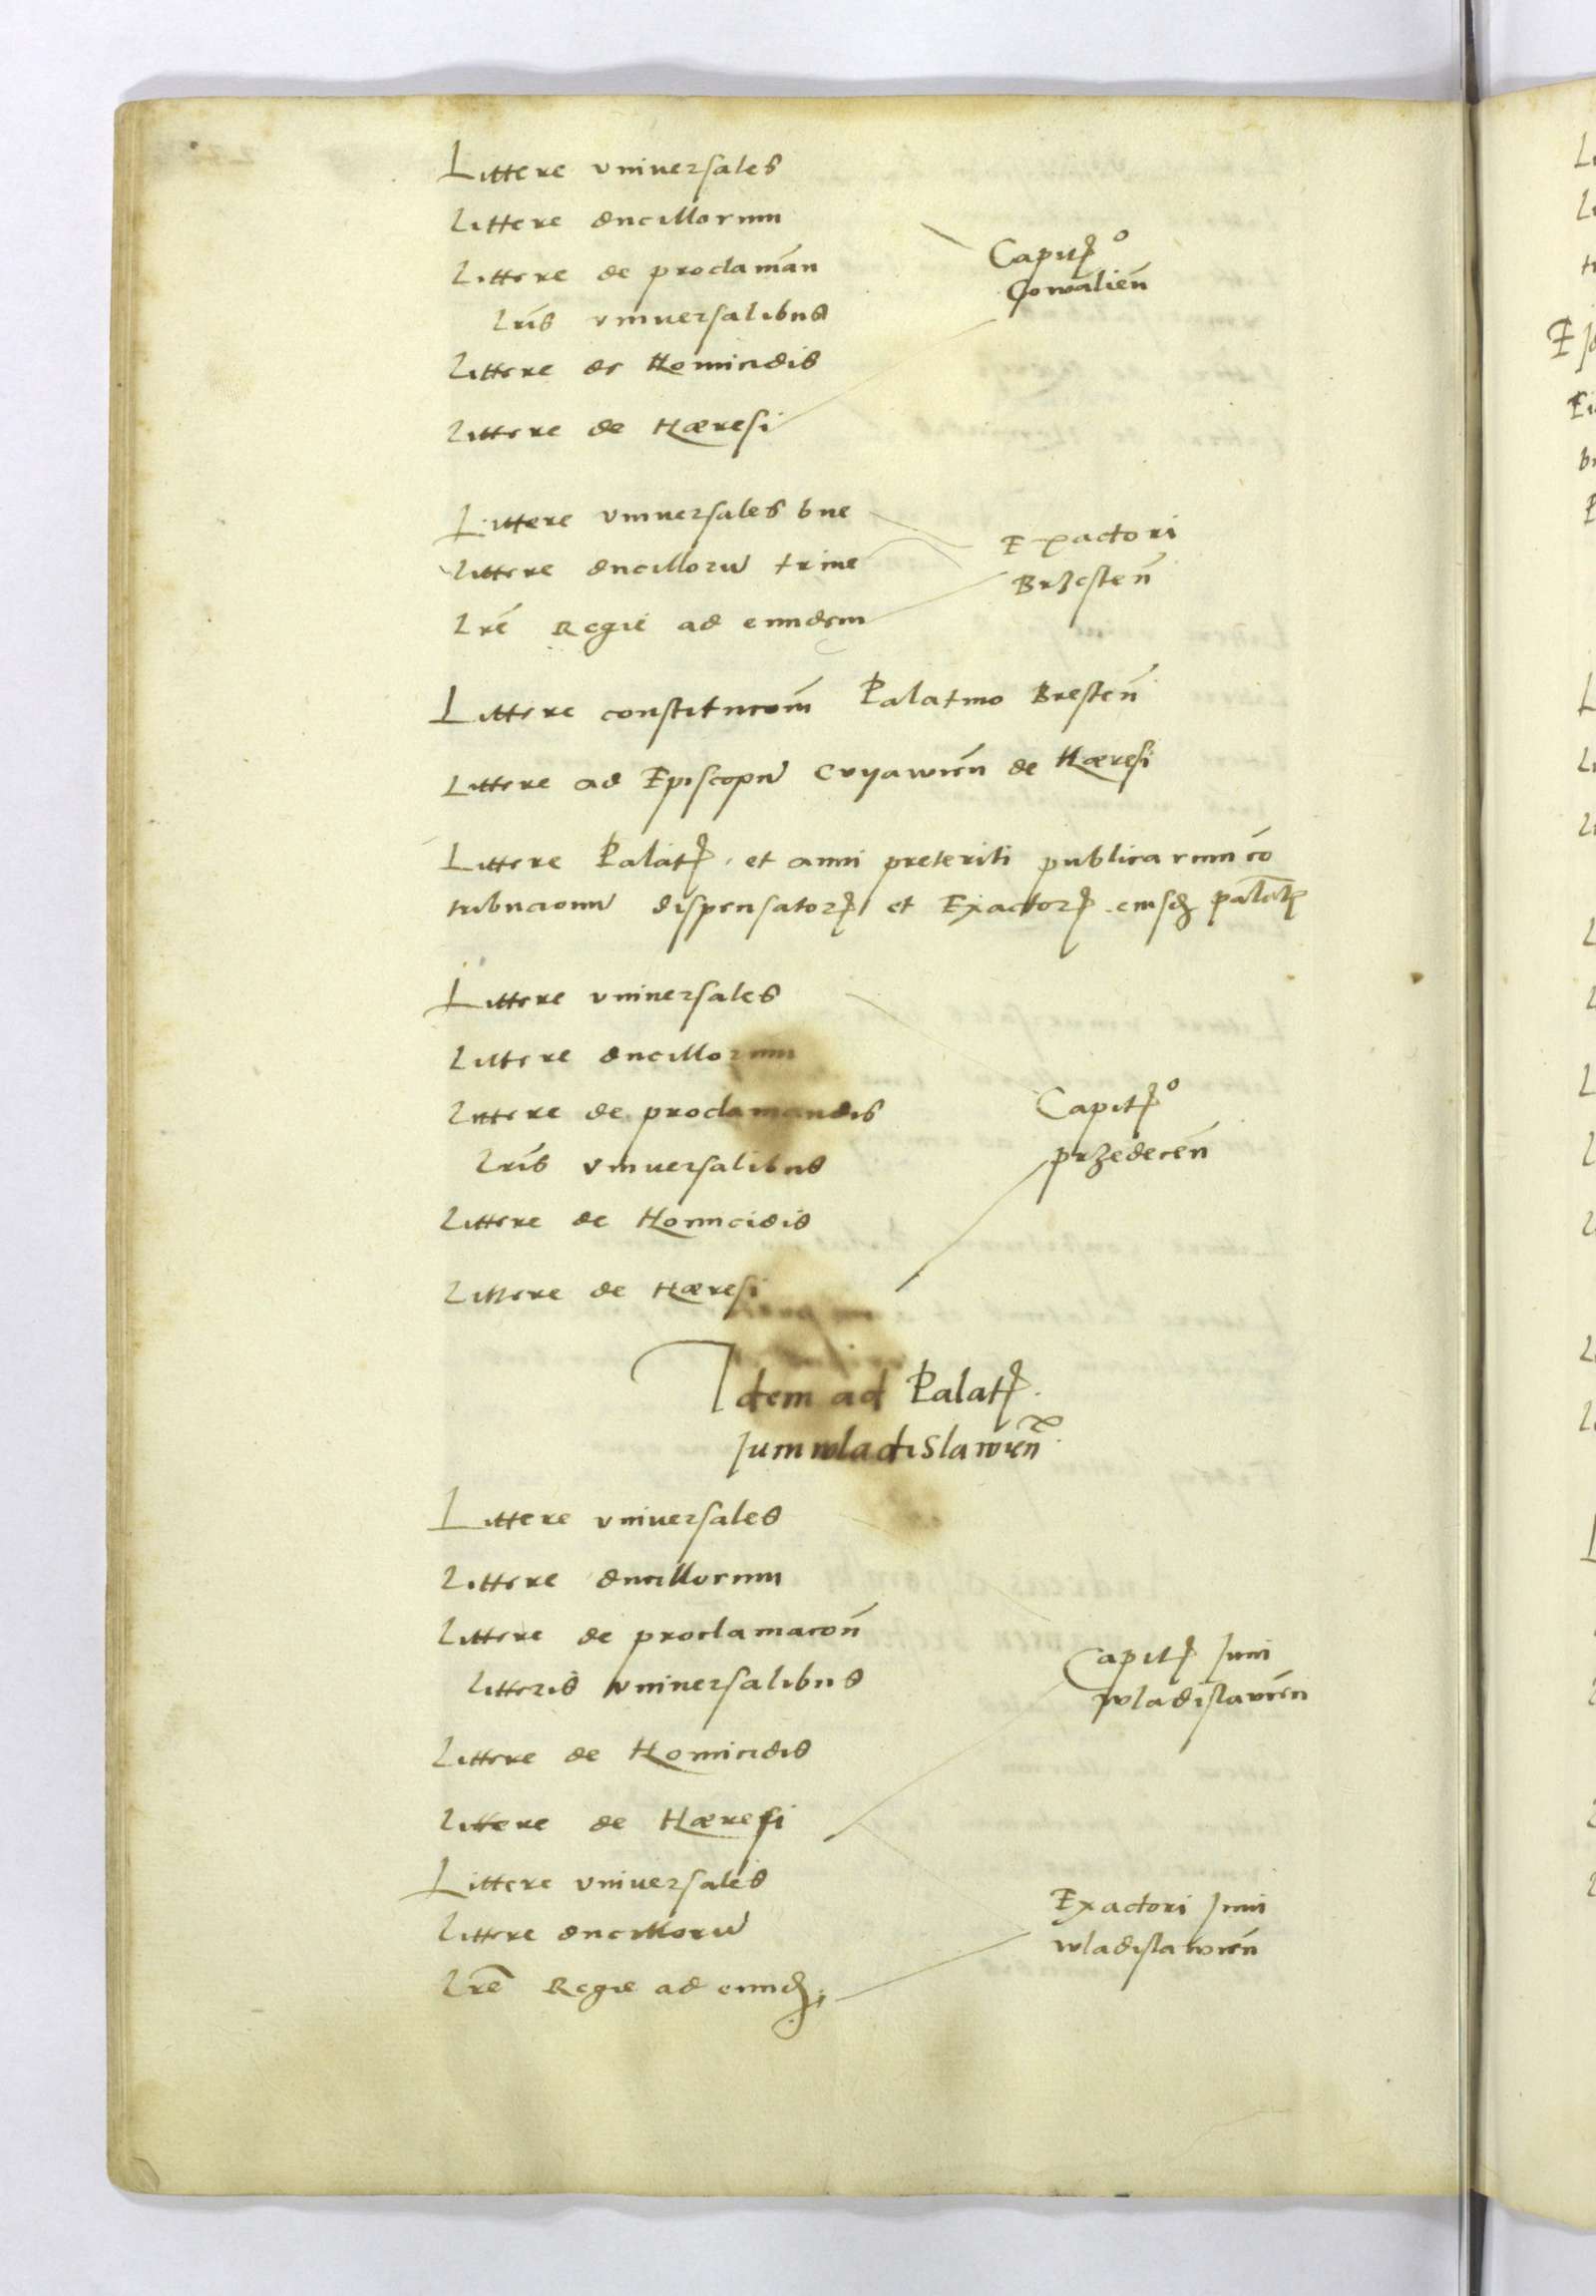 Littere vniuersales
Littere ducillorum
Littere de proclaman̄
Lr̄is vniuersalibus
Littere de Homicidis
Littere de Hæresi
Capitꝭ⁰
Cowalien̄
Littere vniuersales bine
Littere ducilloru̅ trine
Lre̅ Regie ad eundem
Exactori
Brzesten̄
Littere constitucom̄ Palatino Bresten̄
Littere ad Episcopu̅ Cuyawien̄ de Hæresi
Littere Palatꝭ et anni preteriti publicarum co̅
tribucionu̅ dispensatorꝭ et Exactorꝭ eiusdꝭ palatꝭ
Littere vniuersales
Littere ducillorum
Littere de proclamandis
Lr̄is vniuersalibus
Littere de Homicidis
Littere de Hæresi
Capitꝭ⁰
przedecen̄
Idem ad Palatꝭ.
Juniwladislawien̄
Littere vniuersales
Littere ducillorum
Littere de proclamacon̄
Litteris vniuersalibus
Littere de Homicidis
Littere de Hæresi
Capitꝭ Juni
wladislauien̄
Littere vniuersales
Littere ducilloru̅
Lre̅ Regie ad eundꝭ
Exactori Juni
wladislawien̄